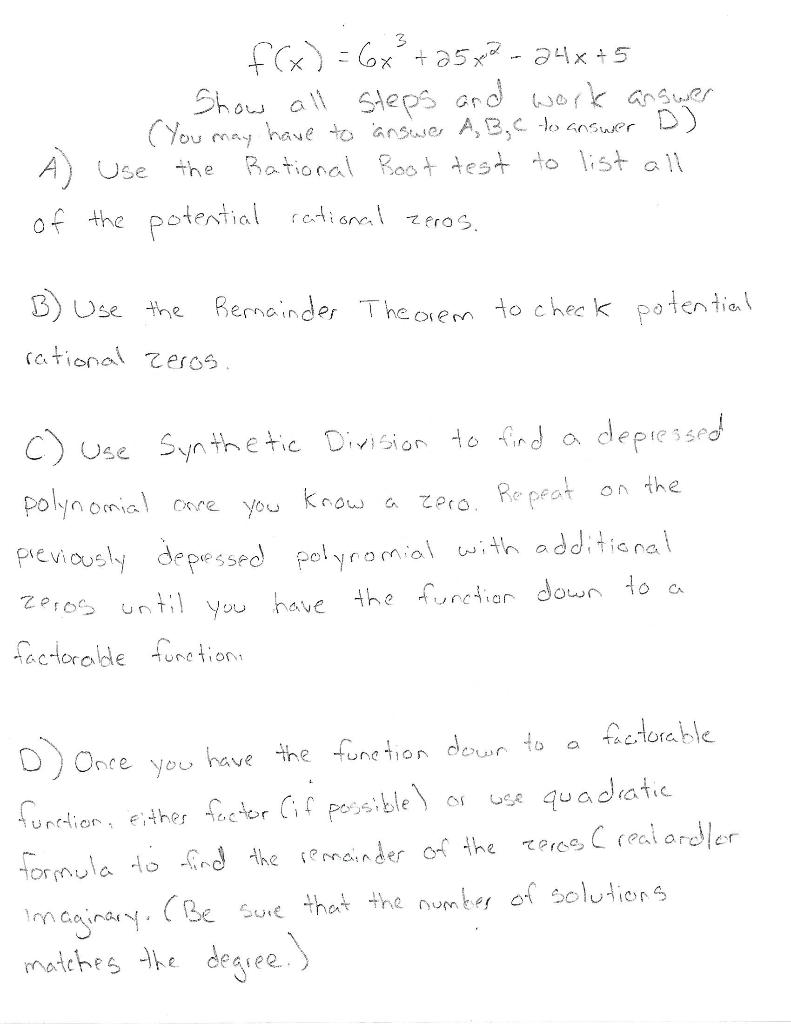 f(x) = 6x³ + 25x² - 24x + 5
Show all steps and work answer
(You may have to answer A, B, C to answer D)
A) Use the Rational Root test to list all
of the potential rational zeros.
B) Use the Remainder Theorem to check potential
rational zeros.
C) Use Synthetic Division to find a depressed
polynomial once you know a zero. Repeat on the
previously depressed polynomial with additional
zeros until you have the function down to a
factorable function.
D) Once you have the function down to a factorable
function, either factor (if possible) or use quadratic
formula to find the remainder of the zeros (real and/or
imaginary. (Be sure that the number of solutions
matches the degree.)